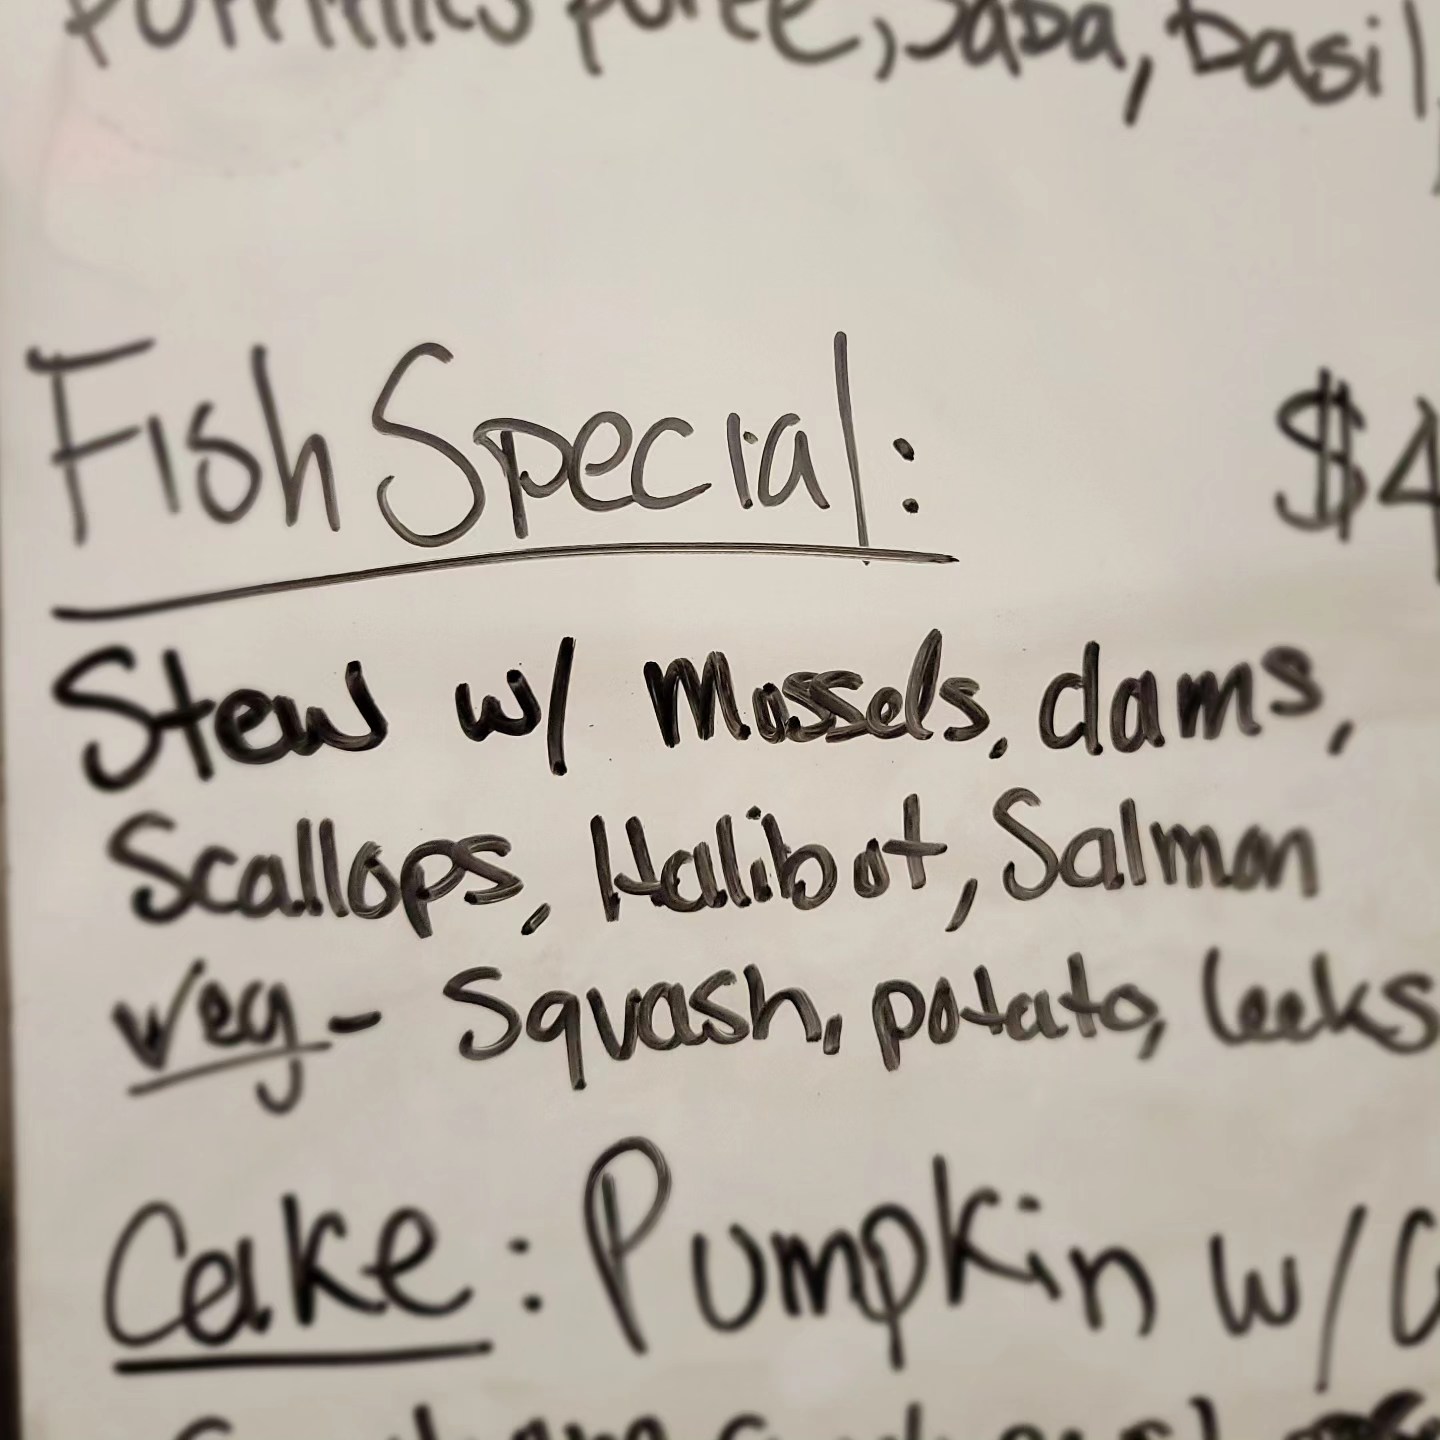 puree, Saba, basil,
Fish Special: $4
Stew w/ Mussels, clams,
Scallops, Halibut, Salmon
Veg - Squash, potato, leeks
Cake: Pumpkin w/